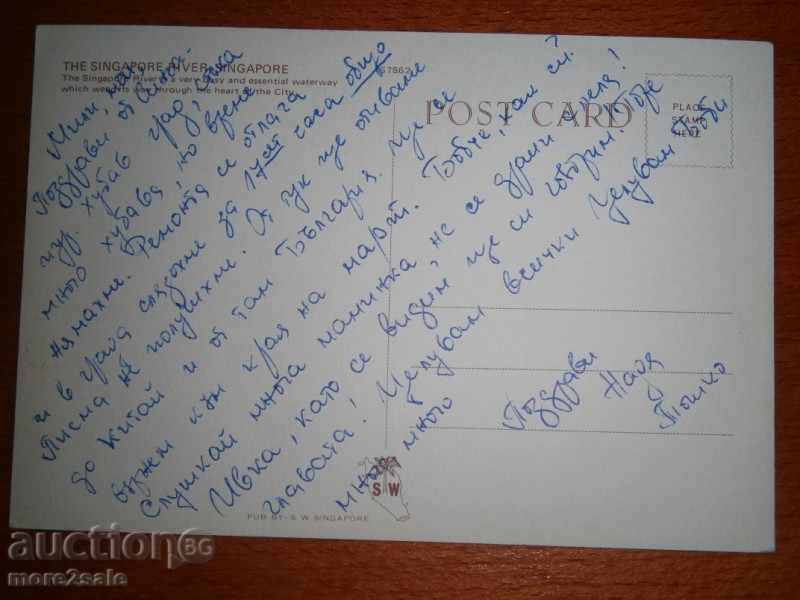 THE SINGAPORE RIVER, SINGAPORE
The Singapore River is a very busy and essential waterway
which wends its way through the heart of the City.
57862
POST CARD
PLACE
STAMP
HERE
Мили мои,
Поздрави от
хубав град,
много хубава, но време
нямахме. Ремонта се отлага
и в града слязохме за 1 час общо
Писма не получихме. От тук ще отиваме
до Китай и от там България. Ще се
върнем към края на март. Бобче, как си?
Слушкай много маминка, не се драй и реля!
Ивка, като се видим ще си говорим. Горе
главата! Целувам всички Целувам
много много
Поздрави
Надя
Тошко
S W
PUB BY: S. W. SINGAPORE
auction BG
more2sale